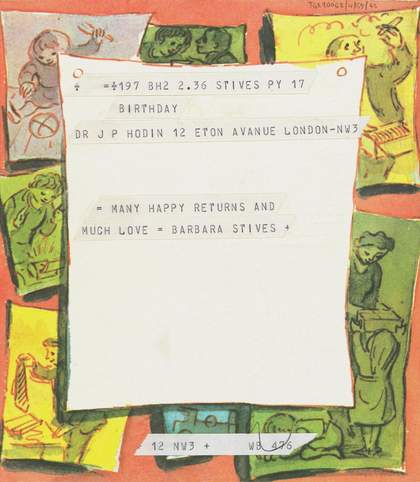 TGA 20062/4/59/62
+ =+197 BH2 2.36 STIVES PY 17
BIRTHDAY
DR J P HODIN 12 ETON AVANUE LONDON-NW3
= MANY HAPPY RETURNS AND
MUCH LOVE = BARBARA STIVES +
12 NW3 + WB 476